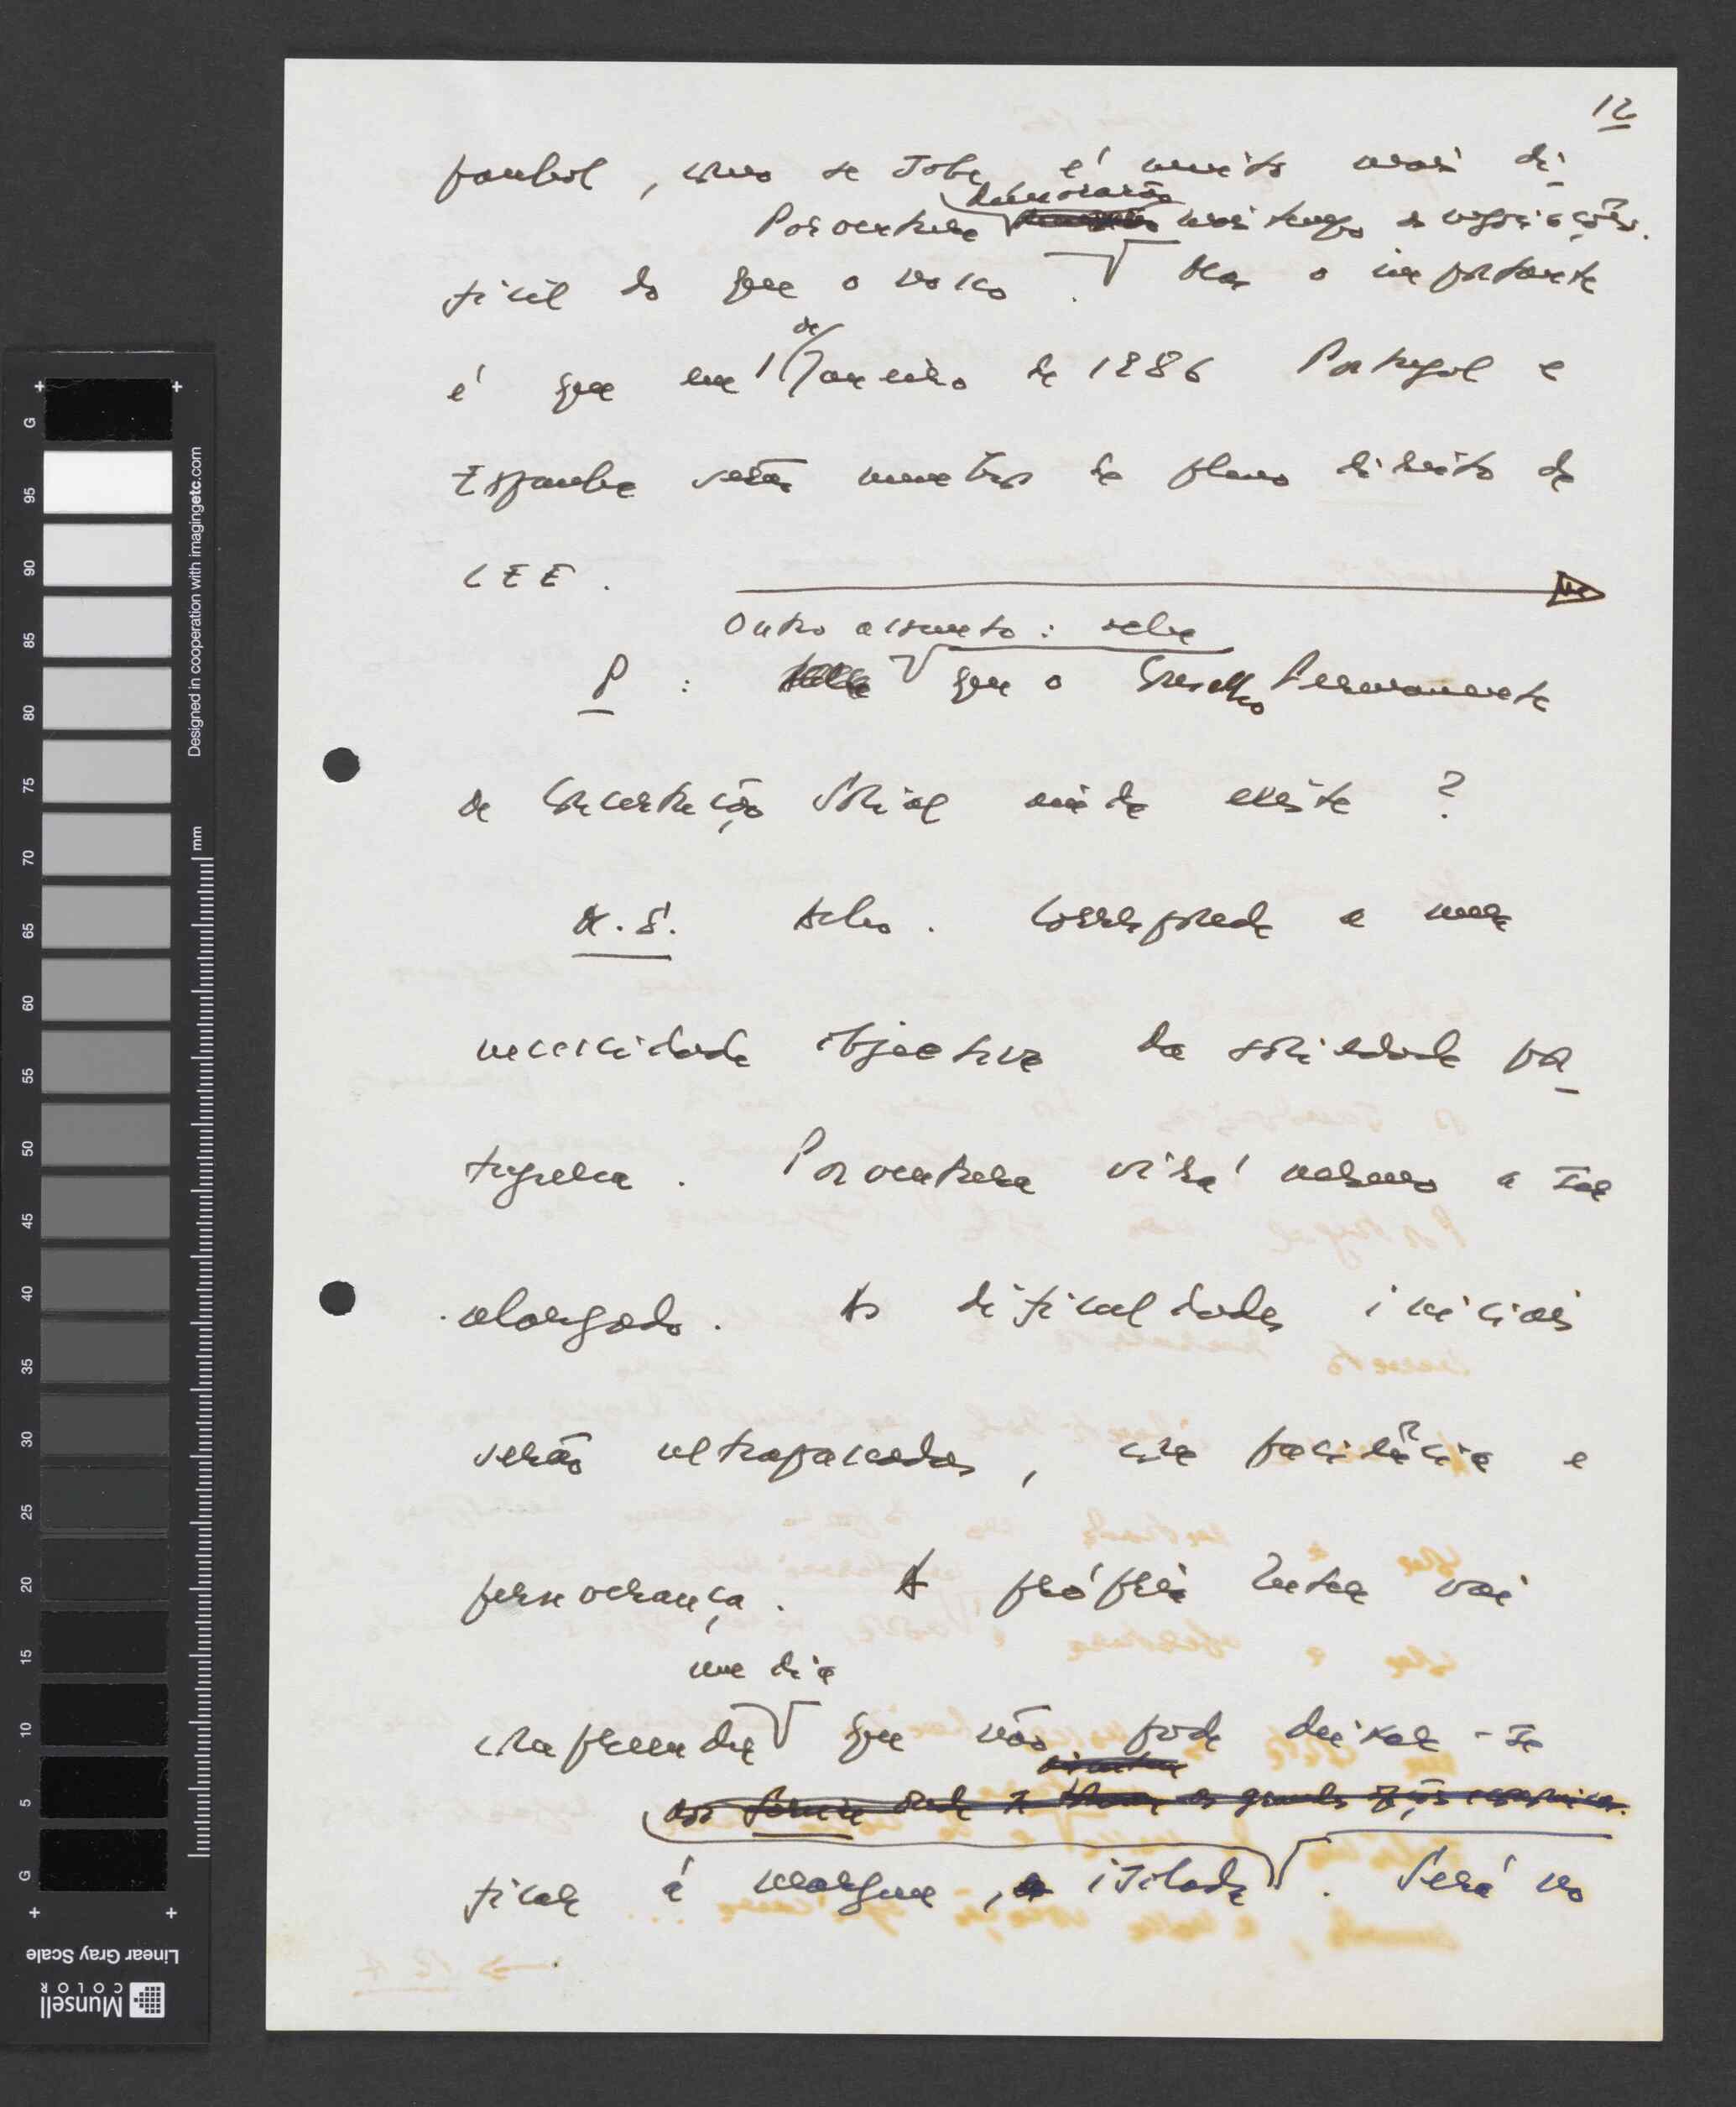 12
panhol, como se sabe, é muito mais di-
Porventura demorarão mais tempo as negociações.
fícil do que o nosso. Mas o importante
é que em 1 de Janeiro de 1986 Portugal e
Espanha serão membros de pleno direito da
CEE.
Outro assunto: acha
P: que o Conselho Permanente
de Concertação Social ainda existe?
M.S. Acho. Corresponde a uma
necessidade objectiva da sociedade por-
tuguesa. Porventura virá mesmo a ser
alargado. As dificuldades iniciais
serão ultrapassadas, com paciência e
perseverança. A própria Inter vai
um dia
compreender que não pode deixar-se
ficar à margem, isolada. Será no
G 95 90 85 80 75 70 65 60 55 50 45 40 35 30 25 20 15 10 5 G
Designed in cooperation with imagingetc.com
mm
Linear Gray Scale
Munsell COLOR